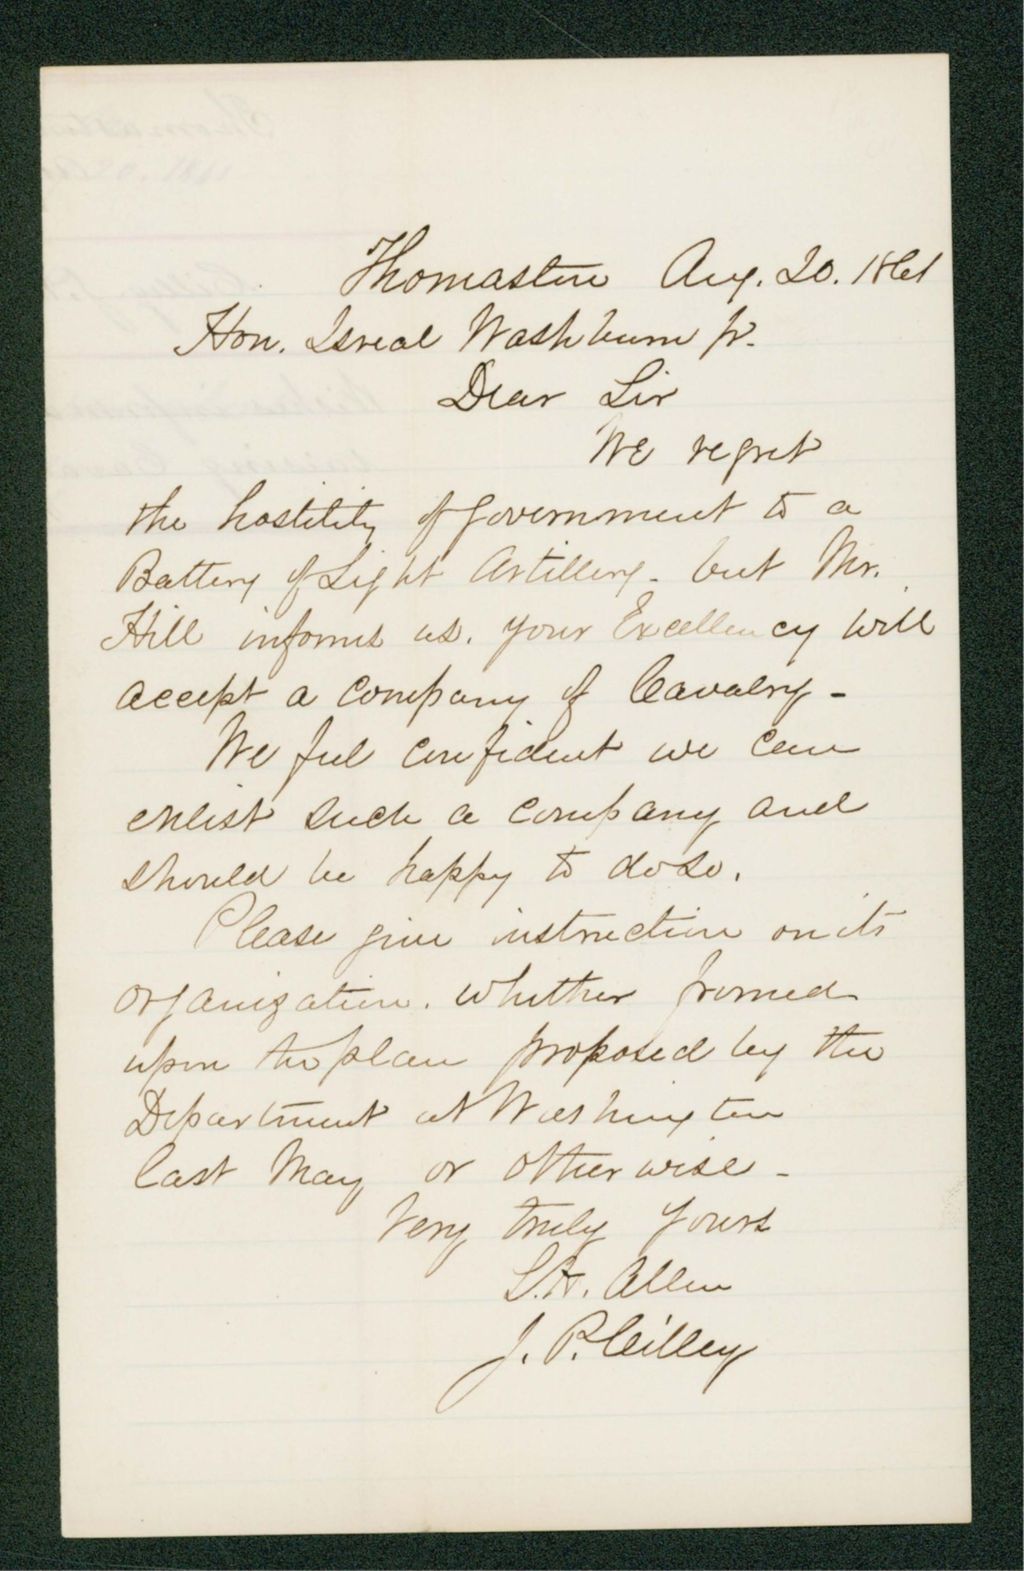 Thomaston Aug. 20. 1861
Hon. Isreal Washburn Jr.
Dear Sir
We regret
the hostility of Government to a
Battery of Light Artillery - but Mr.
Hill informs us. your Excellency will
accept a company of Cavalry -
We feel confident we can
enlist such a company and
should be happy to do so.
Please give instruction on its
organization. whether fromed
upon the plan proposed by the
Department at Washington
last May or otherwise -
Very truly yours
S. H. Allen
J. P. Cilley